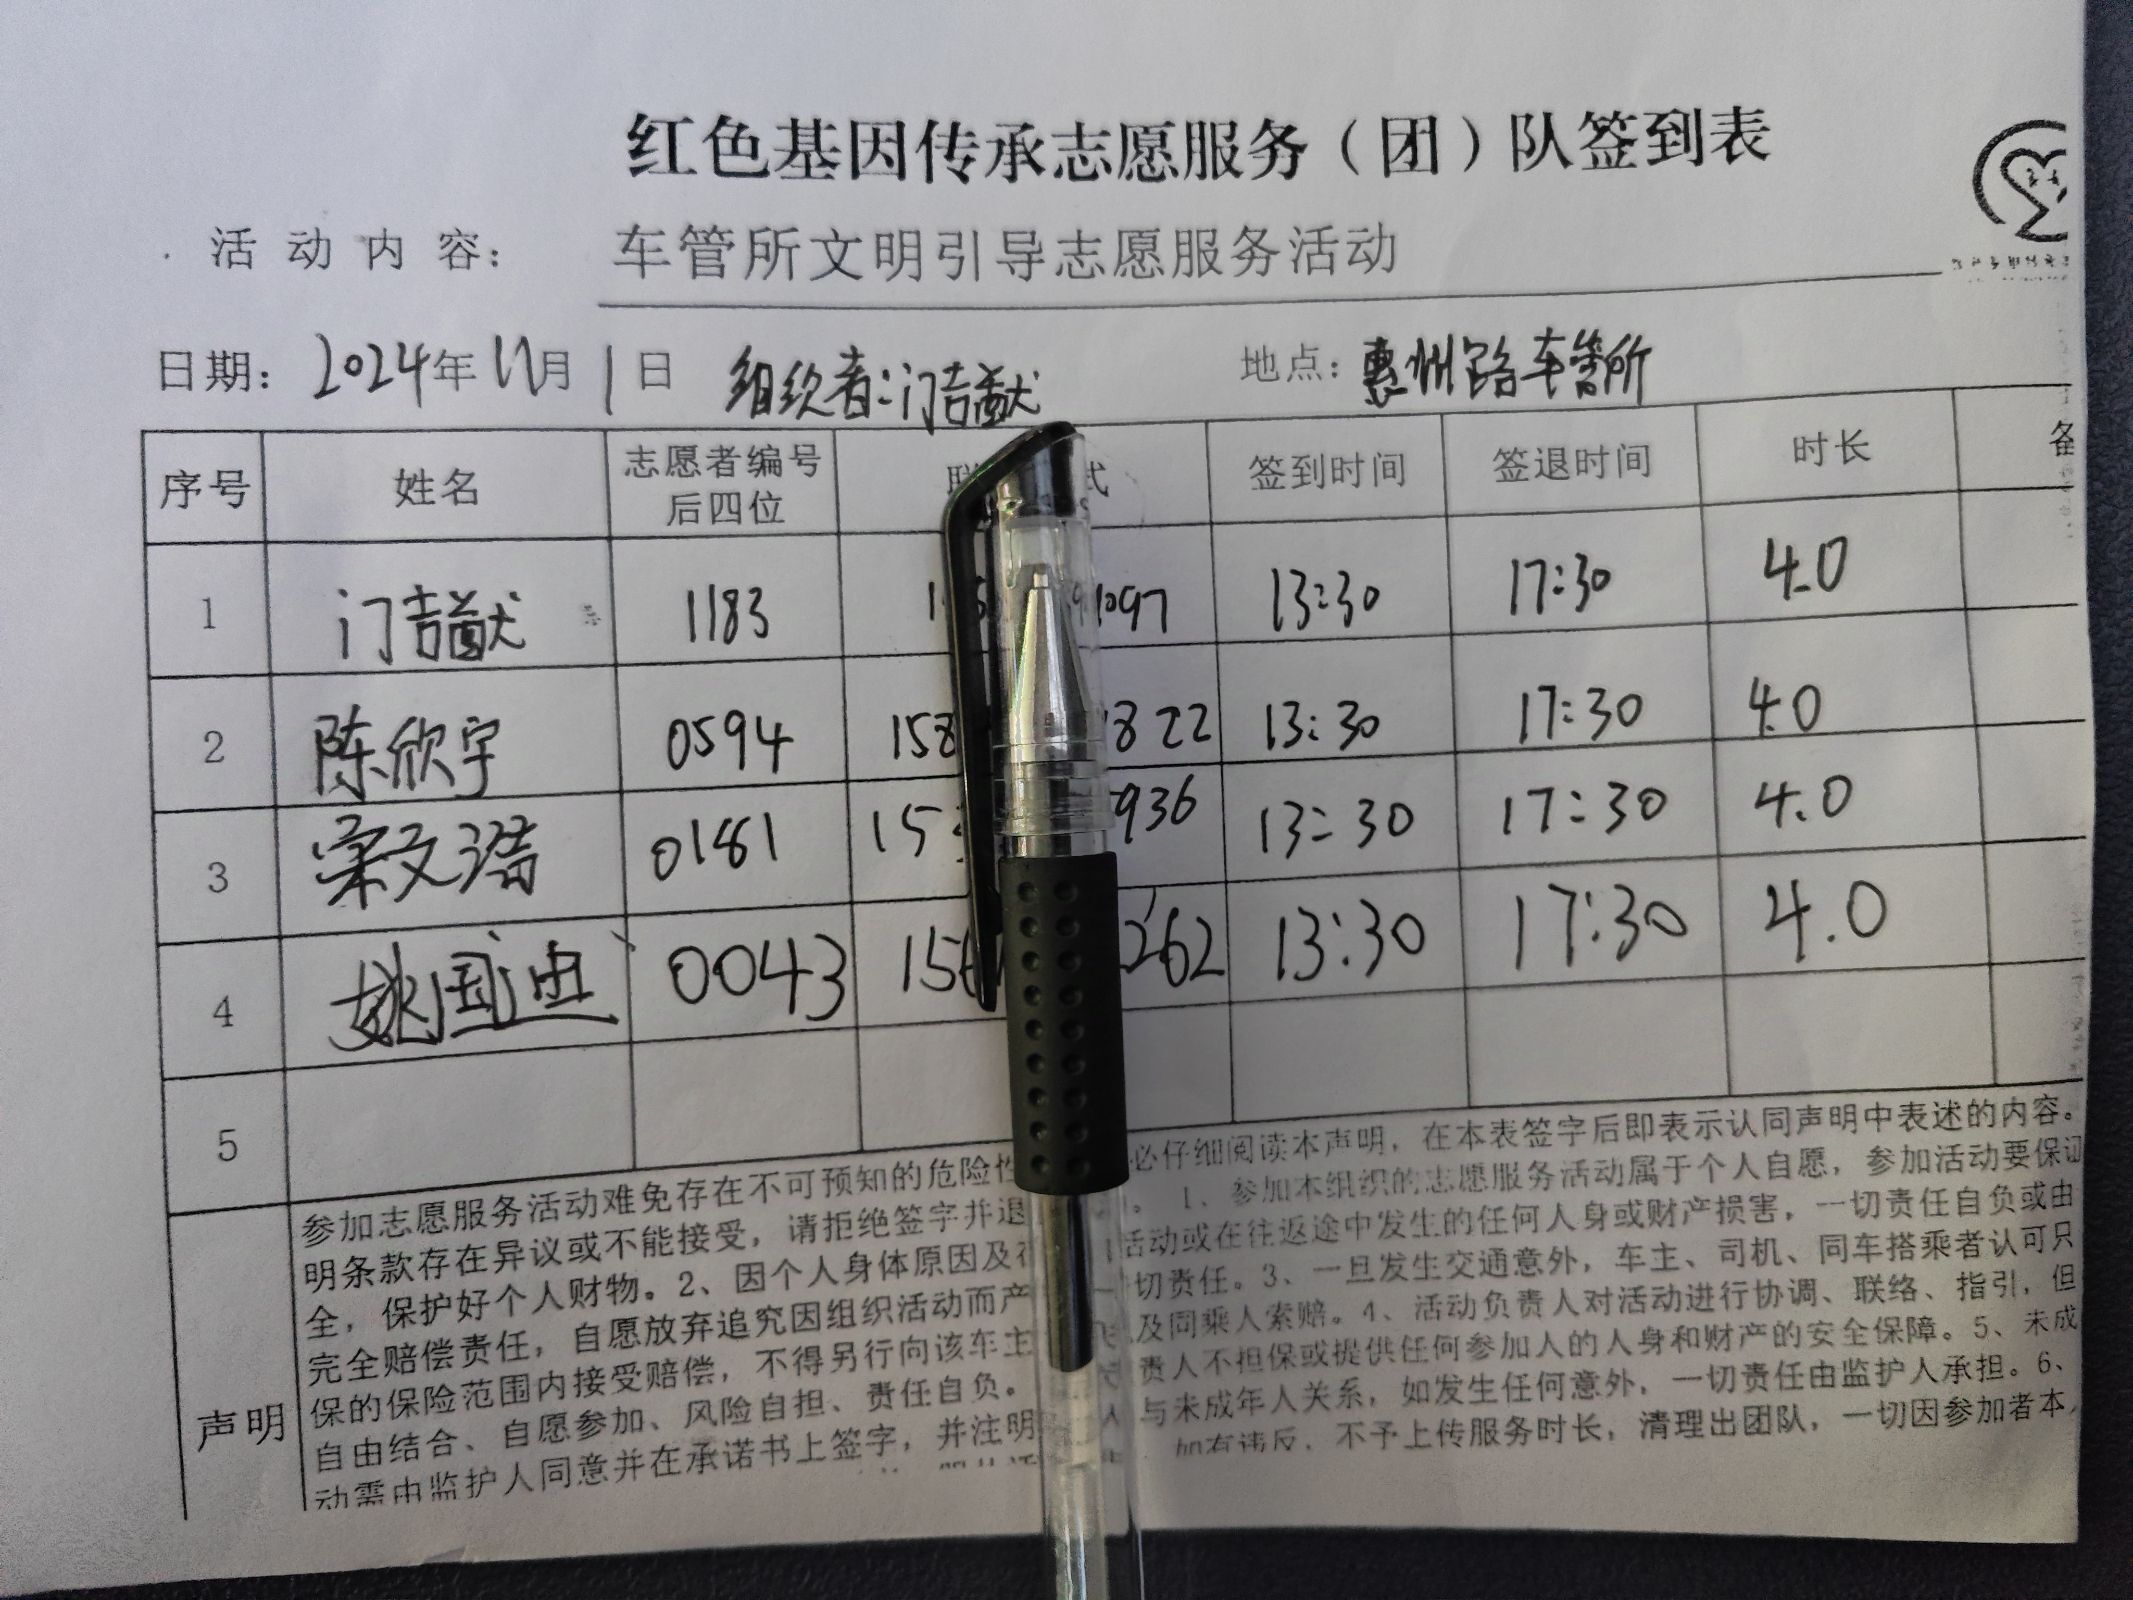 红色基因传承志愿服务（团）队签到表
活动内容： 车管所文明引导志愿服务活动
日期：2024年11月1日 组织者：门吉猷 地点：惠州路车管所
序号 姓名 志愿者编号后四位 联 式 签到时间 签退时间 时长 备
1 门吉猷 1183 1097 13:30 17:30 4.0
2 陈欣宇 0594 158 822 13:30 17:30 4.0
3 文浩 0181 15 936 13:30 17:30 4.0
4 姚国 0043 15 262 13:30 17:30 4.0
5
声明
参加志愿服务活动难免存在不可预知的危险性 必仔细阅读本声明，在本表签字后即表示认同声明中表述的内容。
明条款存在异议或不能接受，请拒绝签字并退 。1、参加本组织的志愿服务活动属于个人自愿，参加活动要保证
全，保护好个人财物。2、因个人身体原因及 活动或在往返途中发生的任何人身或财产损害，一切责任自负或由
完全赔偿责任，自愿放弃追究因组织活动而产 一切责任。3、一旦发生交通意外，车主、司机、同车搭乘者认可只
保的保险范围内接受赔偿，不得另行向该车主 及同乘人索赔。4、活动负责人对活动进行协调、联络、指引，但
自由结合、自愿参加、风险自担、责任自负。 责人不担保或提供任何参加人的人身和财产的安全保障。5、未成
动需由监护人同意并在承诺书上签字，并注明 与未成年人关系，如发生任何意外，一切责任由监护人承担。6、
如有违反，不予上传服务时长，清理出团队，一切因参加者本